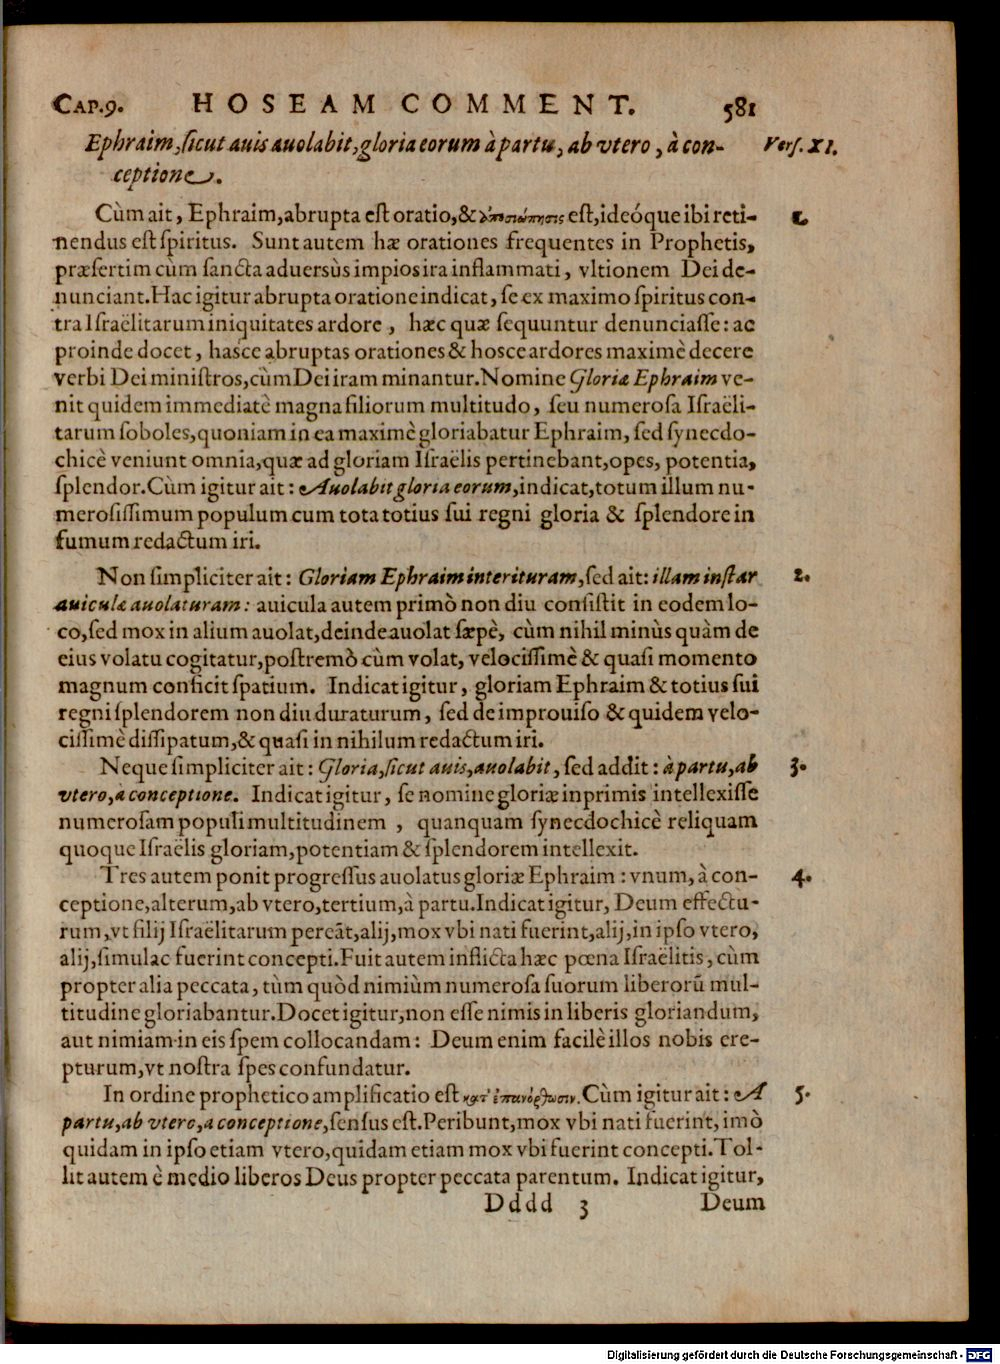 CAP.9. HOSEAM COMMENT. 581
Ephraim, ſicut auis auolabit, gloria eorum à partu, ab vtero, à con- Verſ. XI.
ceptione.
Cùm ait, Ephraim, abrupta eſt oratio, & ἀποσιώπησις eſt, ideóque ibi reti- 1.
nendus eſt ſpiritus. Sunt autem hæ orationes frequentes in Prophetis,
præſertim cùm ſancta aduersùs impios ira inflammati, vltionem Dei de-
nunciant. Hac igitur abrupta oratione indicat, ſe ex maximo ſpiritus con-
tra Iſraëlitarum iniquitates ardore, hæc quæ ſequuntur denunciaſſe: ac
proinde docet, haſce abruptas orationes & hoſce ardores maximè decere
verbi Dei miniſtros, cùm Dei iram minantur. Nomine Gloriæ Ephraim ve-
nit quidem immediatè magna filiorum multitudo, ſeu numeroſa Iſraëli-
tarum ſoboles, quoniam in ea maximè gloriabatur Ephraim, ſed ſynecdo-
chicè veniunt omnia, quæ ad gloriam Iſraëlis pertinebant, opes, potentia,
ſplendor. Cùm igitur ait: Auolabit gloria eorum, indicat, totum illum nu-
meroſiſſimum populum cum tota totius ſui regni gloria & ſplendore in
fumum redactum iri.
Non ſimpliciter ait: Gloriam Ephraim interituram, ſed ait: illam inſtar 2.
auiculæ auolaturam: auicula autem primò non diu conſiſtit in eodem lo-
co, ſed mox in alium auolat, deinde auolat ſæpè, cùm nihil minùs quàm de
eius volatu cogitatur, poſtremò cùm volat, velociſſimè & quaſi momento
magnum conficit ſpatium. Indicat igitur, gloriam Ephraim & totius ſui
regni ſplendorem non diu duraturum, ſed de improuiſo & quidem velo-
ciſſimè diſſipatum, & quaſi in nihilum redactum iri.
Neque ſimpliciter ait: Gloria, ſicut auis, auolabit, ſed addit: à partu, ab 3.
vtero, à conceptione. Indicat igitur, ſe nomine gloriæ inprimis intellexiſſe
numeroſam populi multitudinem, quanquam ſynecdochicè reliquam
quoque Iſraëlis gloriam, potentiam & ſplendorem intellexit.
Tres autem ponit progreſſus auolatus gloriæ Ephraim: vnum, à con- 4.
ceptione, alterum, ab vtero, tertium, à partu. Indicat igitur, Deum effectu-
rum, vt filij Iſraëlitarum pereāt, alij, mox vbi nati fuerint, alij, in ipſo vtero,
alij, ſimulac fuerint concepti. Fuit autem inflicta hæc pœna Iſraëlitis, cùm
propter alia peccata, tùm quòd nimiùm numeroſa ſuorum liberorū mul-
titudine gloriabantur. Docet igitur, non eſſe nimis in liberis gloriandum,
aut nimiam in eis ſpem collocandam: Deum enim facilè illos nobis ere-
pturum, vt noſtra ſpes confundatur.
In ordine prophetico amplificatio eſt κατ' ἐπανόρθωσιν. Cùm igitur ait: A 5.
partu, ab vtero, a conceptione, ſenſus eſt. Peribunt, mox vbi nati fuerint, imò
quidam in ipſo etiam vtero, quidam etiam mox vbi fuerint concepti. Tol-
lit autem è medio liberos Deus propter peccata parentum. Indicat igitur,
Dddd 3 Deum
Digitalisierung gefördert durch die Deutsche Forschungsgemeinschaft - DFG